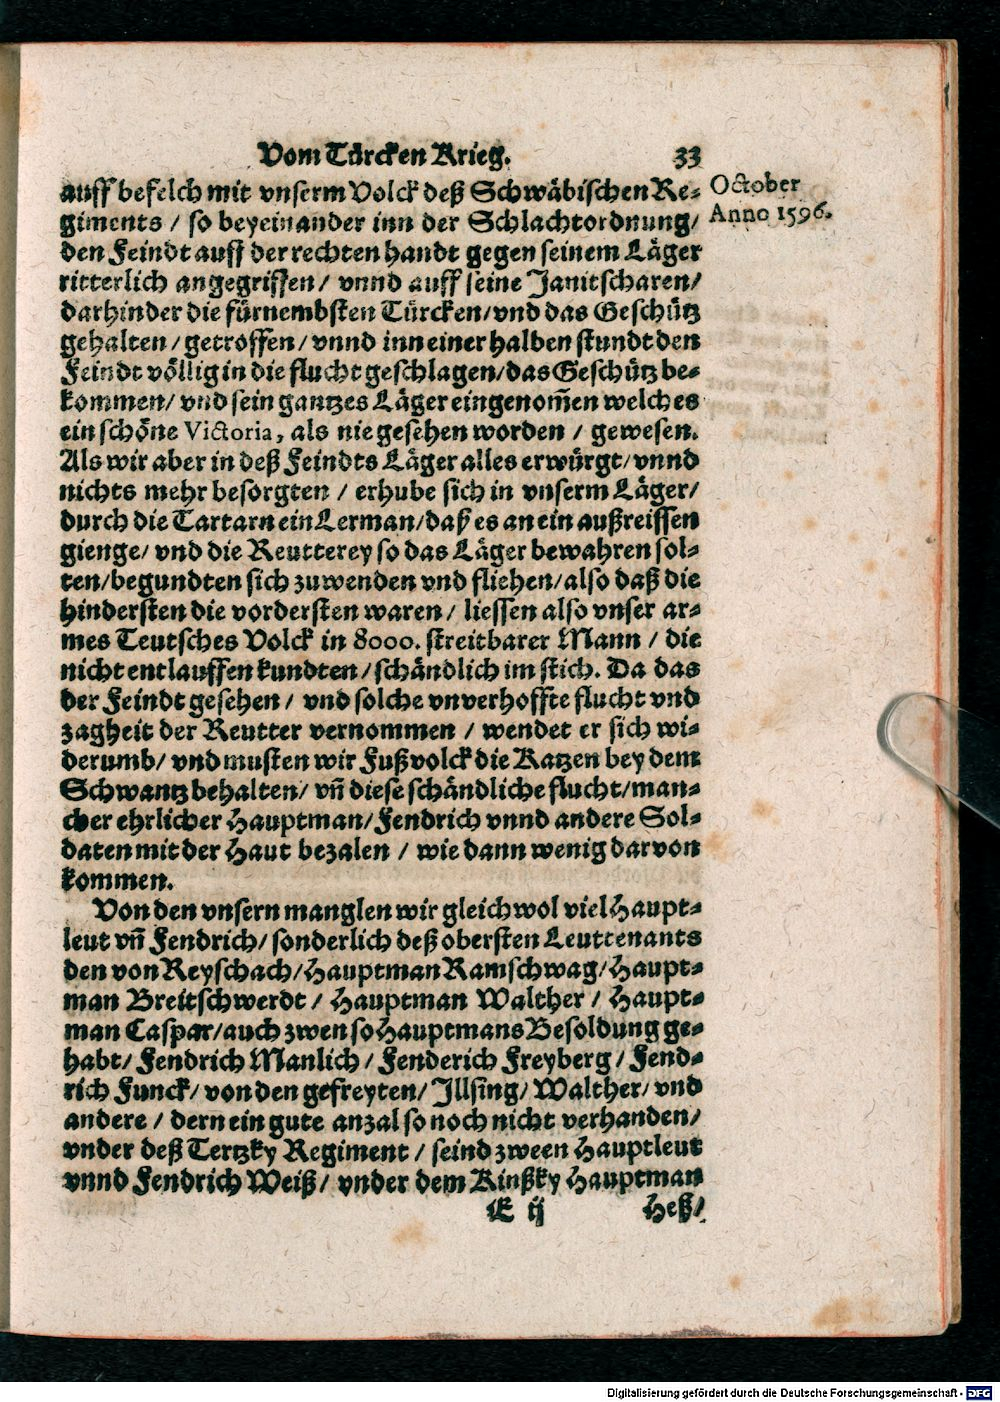 Vom Türcken Krieg. 33
October
Anno 1596.
auff befelch mit vnserm Volck deß Schwäbischen Re-
giments / so beyeinander inn der Schlachtordnung/
den Feindt auff der rechten handt gegen seinem Läger
ritterlich angegriffen / vnnd auff seine Janitscharen/
darhinder die fürnembsten Türcken/vnd das Geschütz
gehalten / getroffen / vnnd inn einer halben stundt den
Feindt völlig in die flucht geschlagen/das Geschütz be-
kommen/ vnd sein gantzes Läger eingenom̃en welches
ein schöne Victoria, als nie gesehen worden / gewesen.
Als wir aber in deß Feindts Läger alles erwürgt/vnnd
nichts mehr besorgten / erhube sich in vnserm Läger/
durch die Tartarn ein Lerman/daß es an ein außreissen
gienge/ vnd die Reutterey so das Läger bewahren sol-
ten/begundten sich zuwenden vnd fliehen/also daß die
hindersten die vordersten waren / liessen also vnser ar-
mes Teutsches Volck in 8000. streitbarer Mann / die
nicht entlauffen kundten/schändlich im stich. Da das
der Feindt gesehen / vnd solche vnverhoffte flucht vnd
zagheit der Reutter vernommen / wendet er sich wi-
derumb/ vnd musten wir Fußvolck die Katzen bey dem
Schwantz behalten/ vñ diese schändliche flucht/man-
cher ehrlicher Hauptman/Fendrich vnnd andere Sol-
daten mit der Haut bezalen / wie dann wenig darvon
kommen.
Von den vnsern manglen wir gleichwol viel Haupt-
leut vñ Fendrich/ sonderlich deß obersten Leuttenants
den von Reyschach/Hauptman Ramschwag/Haupt-
man Breitschwerdt / Hauptman Walther / Haupt-
man Caspar/auch zwen so Hauptmans Besoldung ge-
habt/ Fendrich Manlich / Fenderich Freyberg / Fend-
rich Funck/ von den gefreyten/ Jllsing/ Walther/ vnd
andere / dern ein gute anzal so noch nicht verhanden/
vnder deß Tertzky Regiment / seind zween Hauptleut
vnnd Fendrich Weiß/ vnder dem Kinßky Hauptman
E ij Heß/
Digitalisierung gefördert durch die Deutsche Forschungsgemeinschaft - DFG